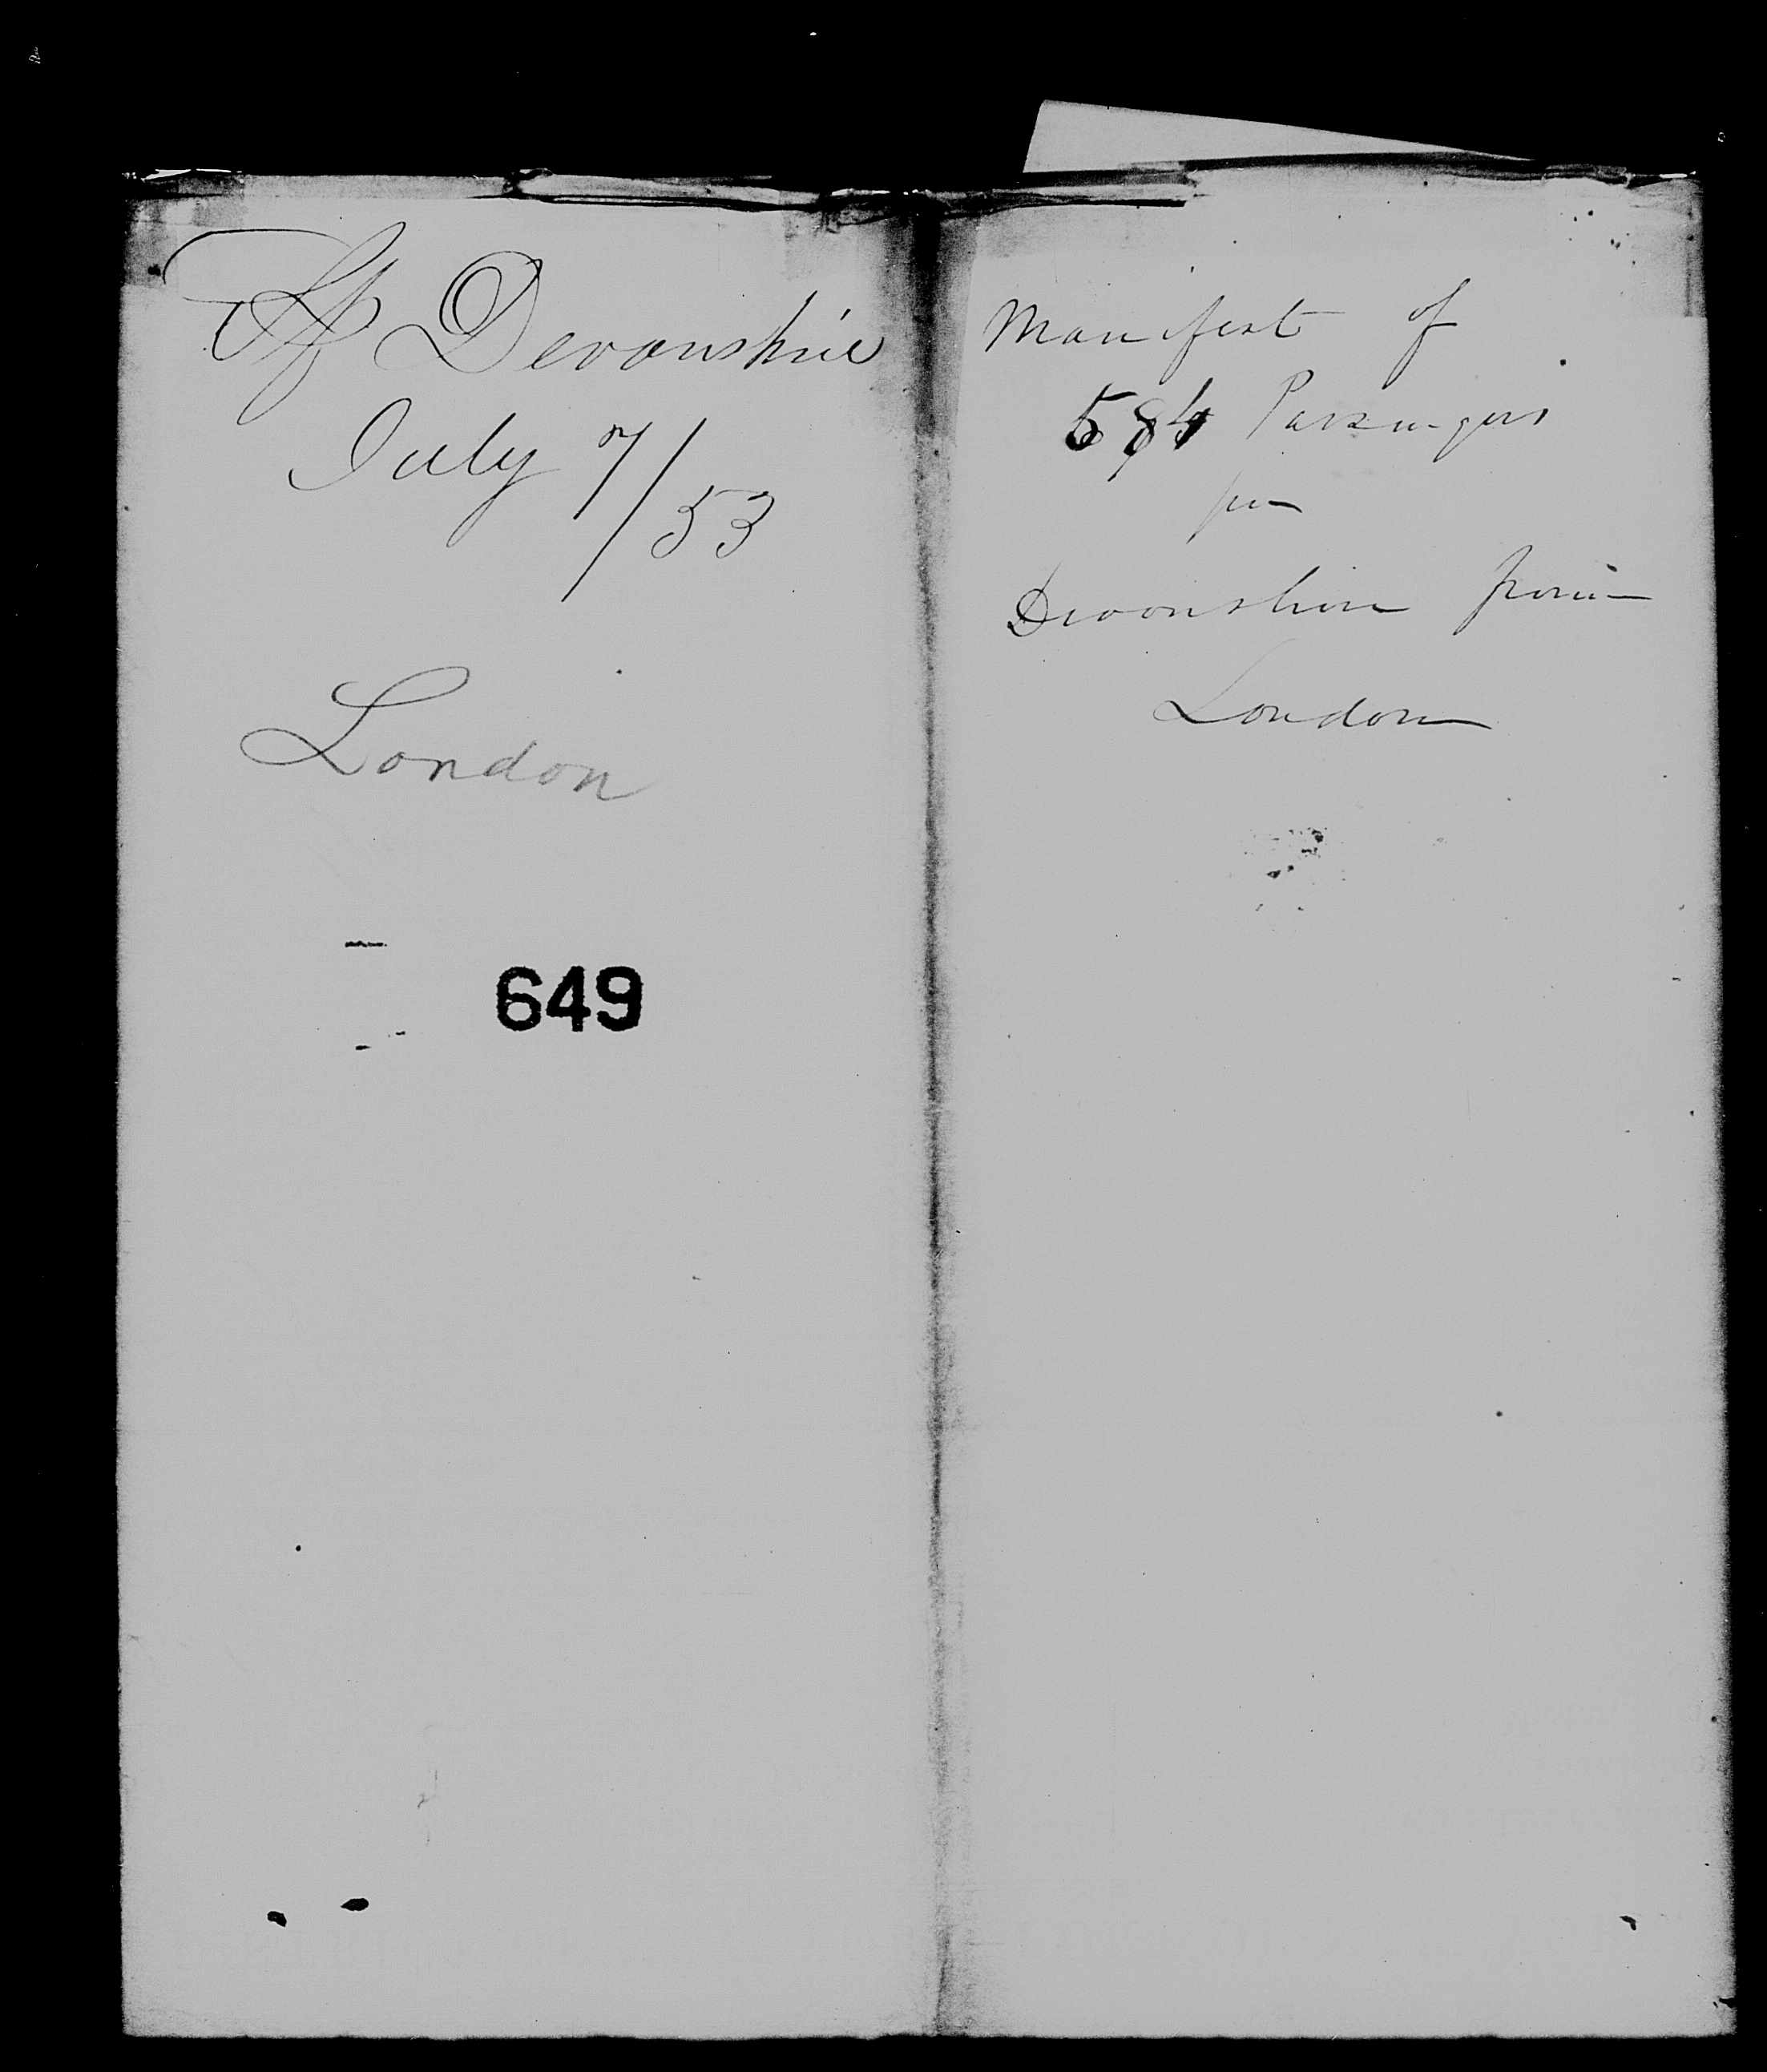 Devonshire
July 7/53
London
649
Manifest of
584 Passengers
per
Devonshire from
London